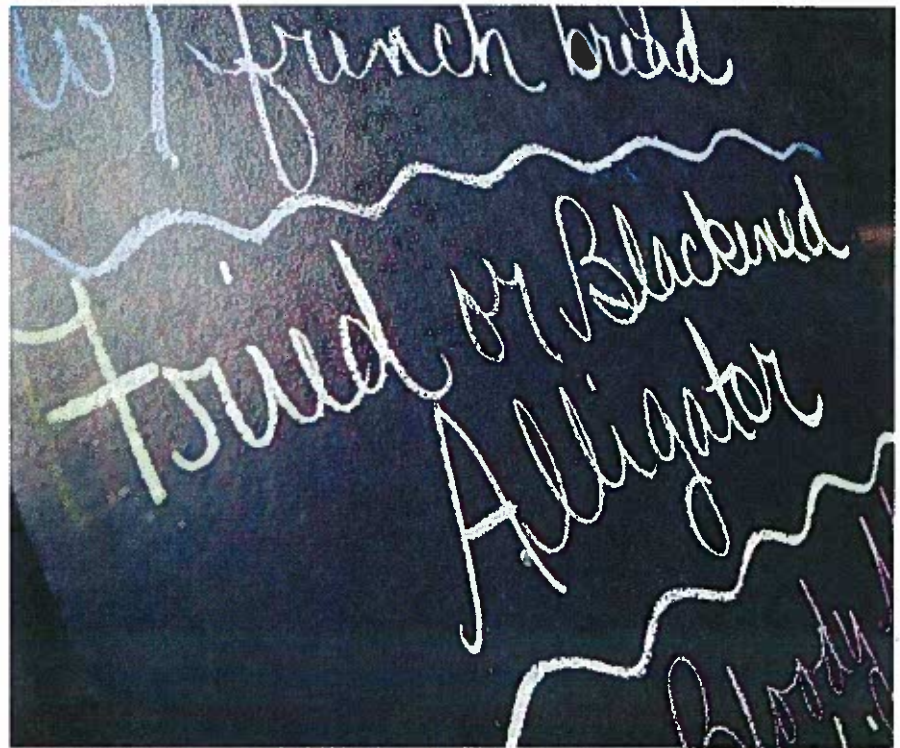 w/ french bread
Fried or Blackened
Alligator
Bloody